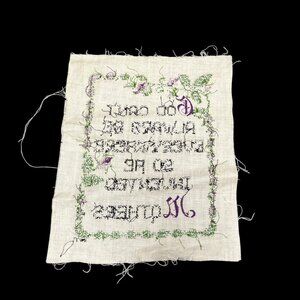 God CAN'T
ALWAYS BE
EVERYWHERE
SO HE
INVENTED
MOTHERS